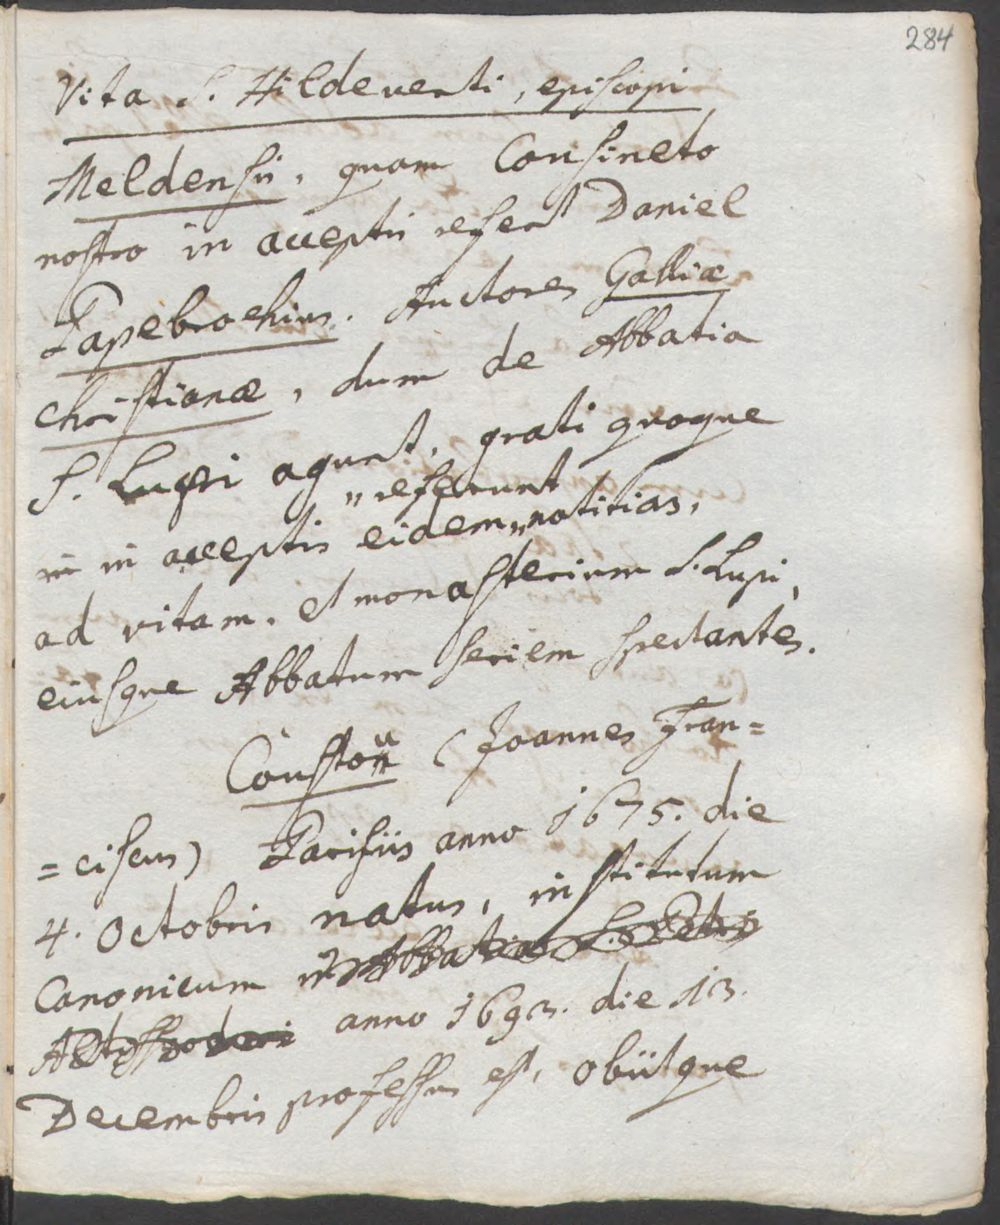 284
Vita S. Hildeverti, episcopi
Meldensis, quam Cousineto
nostro in acceptis refert Daniel
Papebrochius. Auctores Galliæ
Christianæ, dum de Abbatia
S. Lupi agunt, grati quoque
„referunt
in acceptis eidem „notitias,
ad vitam, et monasterium S. Lupi,
ejusque Abbatum seriem spectantes.
(Joannes Fran=
=ciscus) Parisiis anno 1675. die
4. Octobris natus, institutum
Canonicum in Abbatia S. Petri
anno 1693. die 13.
Decembris professus est, obiitque